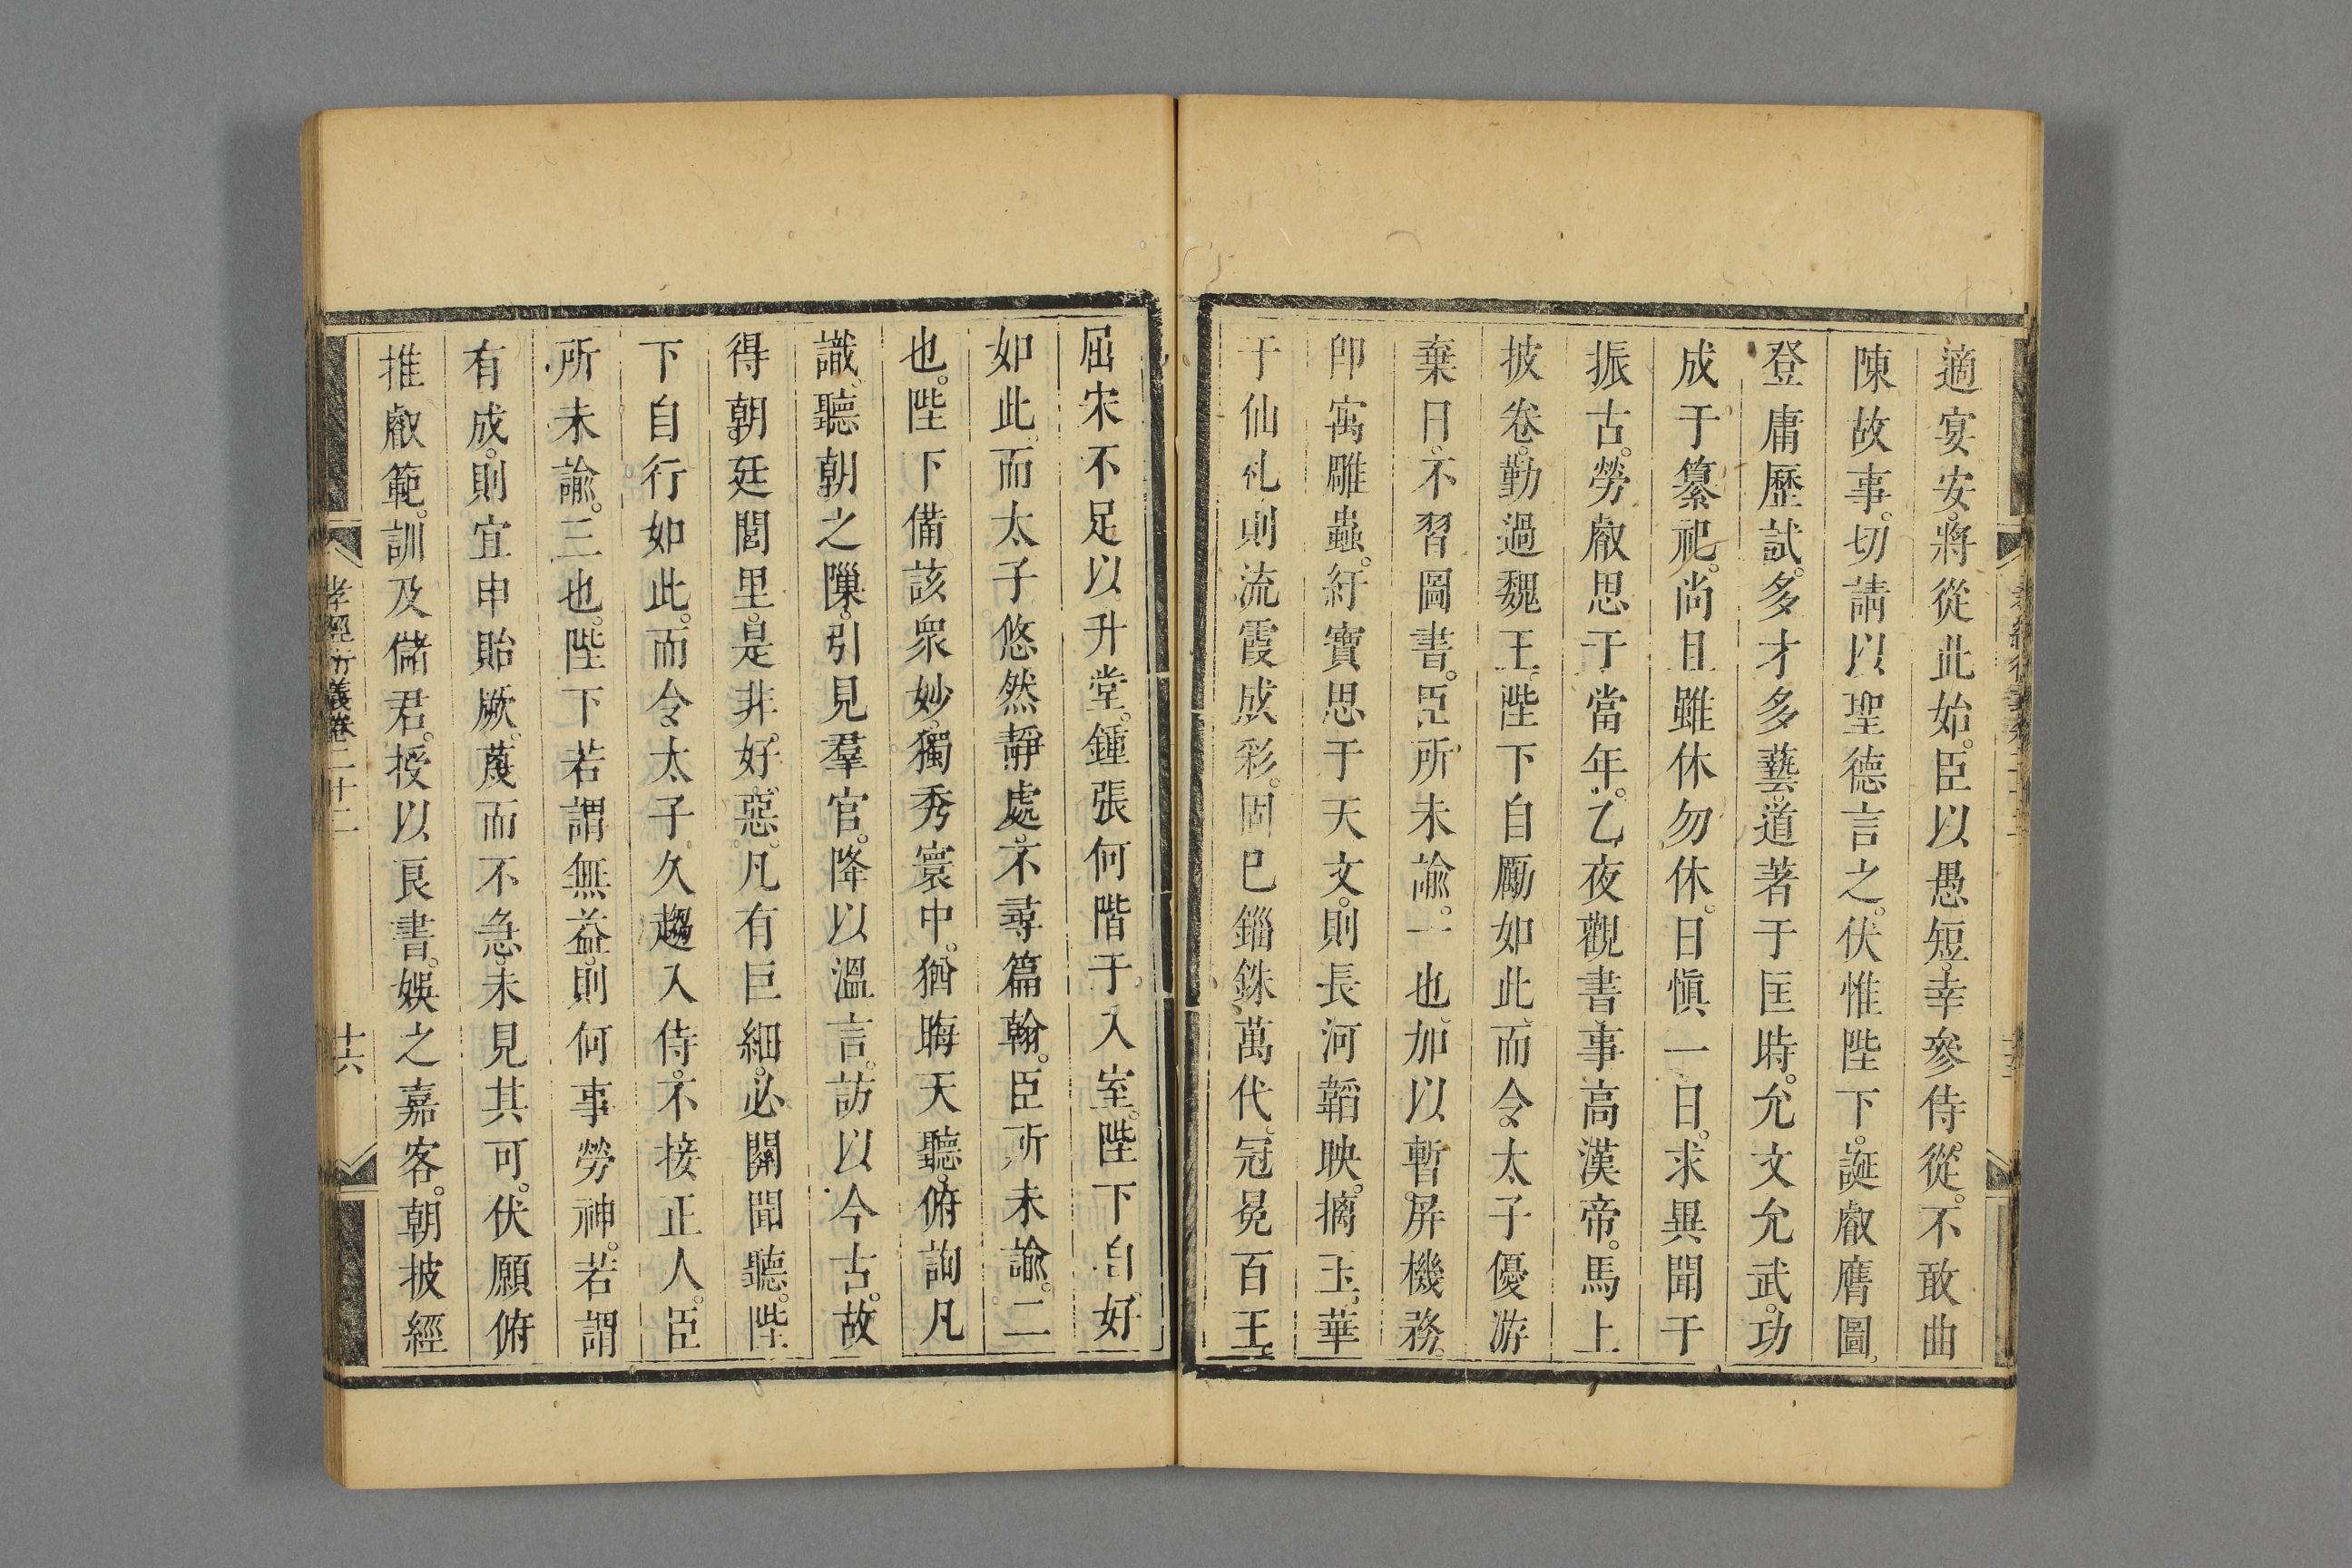 適宴安。將從此始。臣以愚短。幸參侍從。不敢曲
陳故事。切請以聖德言之。伏惟陛下。誕叡膺圖。
登庸歷試。多才多藝。道著于匡時。允文允武。功
成于纂祀。尚且雖休勿休。日慎一日。求異聞于
振古。勞叡思于當年。乙夜觀書。事高漢帝。馬上
披卷。勤過魏王。陛下自勵如此。而令太子優游
棄日。不習圖書。臣所未諭。一也。加以暫屏機務。
卽寓雕蟲。紆寶思于天文。則長河韜映。摛玉華
于仙札。則流霞成彩。固已錙銖萬代。冠冕百王。
屈宋不足以升堂。鍾張何階于入室。陛下自好
如此。而太子悠然靜處。不尋篇翰。臣所未諭。二
也。陛下備該衆妙。獨秀寰中。猶晦天聽。俯詢凡
識。聽朝之隟。引見羣官。降以溫言。訪以今古。故
得朝廷閭里。是非好惡。凡有巨細。必關聞聽。陛
下自行如此。而令太子久趨入侍。不接正人。臣
所未諭。三也。陛下若謂無益。則何事勞神。若謂
有成。則宜申貽厥。蔑而不急。未見其可。伏願俯
推叡範。訓及儲君。授以良書。娛之嘉客。朝披經
孝經衍義卷二十二
十六